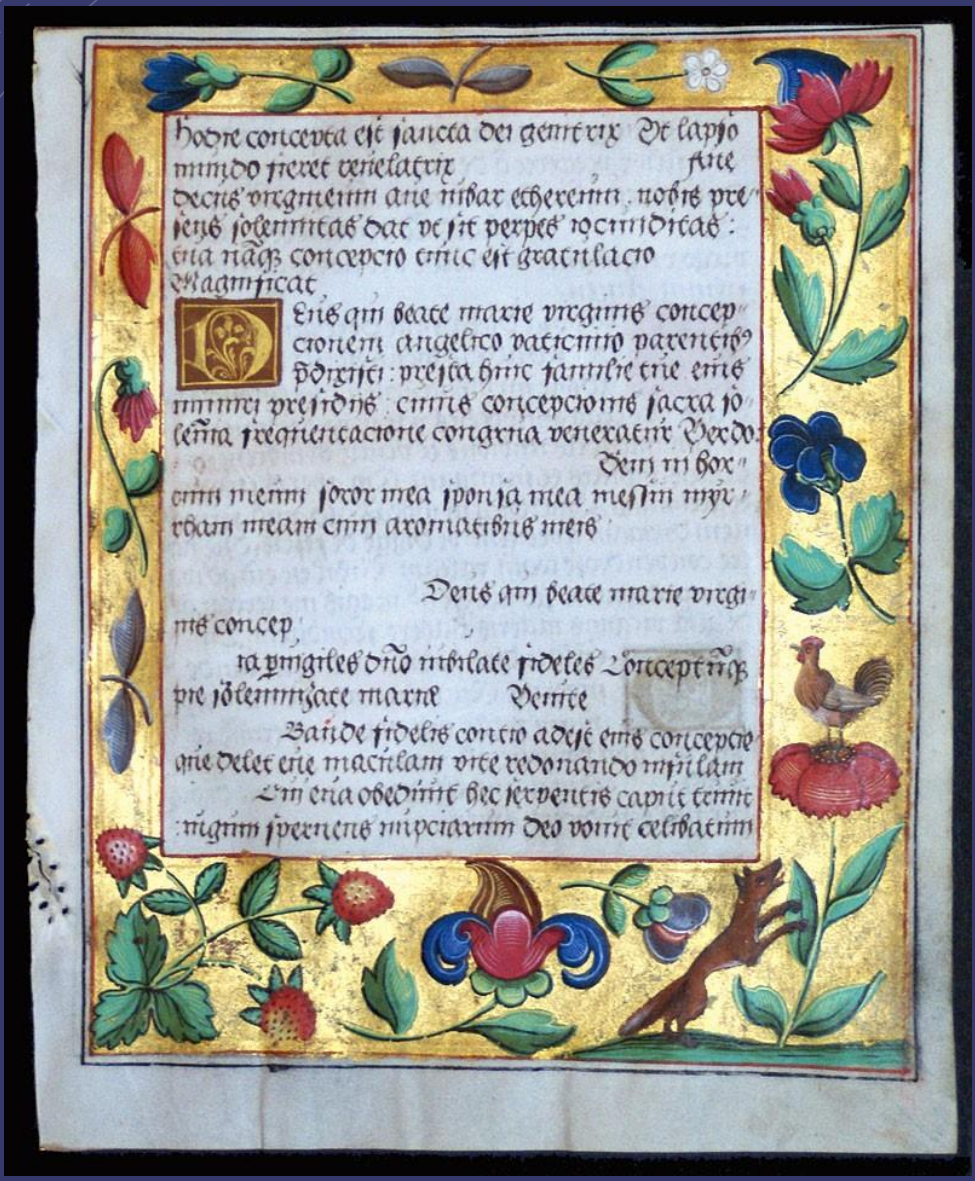 hodie concepta est sancta dei genitrix Vt lapso
mundo fieret revelatrix Aue
decus virgineum aue iubar ethereum nobis pre-
sens solennitas dat vt sit perpes iocunditas :
tua nāq3 concepcio tunc est gratulacio
Magnificat
Deus qui beate marie virginis concep-
cionem angelico vaticinio parentibꝰ
p̄dixisti : presta huic familie tue eius
muniri presidijs cuius concepcionis sacra so-
lēnia frequentacione congrua veneratur Per do
Veni in hor-
tum meum soror mea sponsa mea messui myr-
rham meam cum aromatibus meis
Deus qui beate marie virgi-
nis concep
ia pvigiles dn̄o iubilate fideles Conceptūq3
pie solemnizate marie Venite
Gaude fidelis concio adest eius concepcio
que delet eue maculam vite redonando
Cui eua obediuit hec serpentis caput triuit
spernens nupciarum deo vouit celibatum